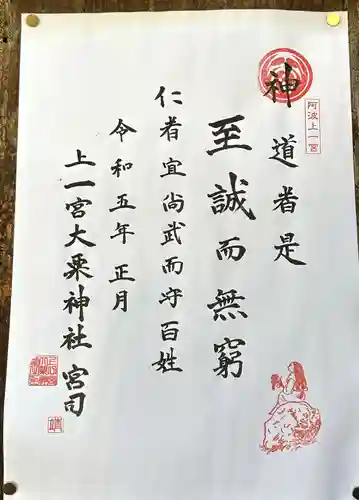 神道者是
阿波上一宮
至誠而無窮
仁者宜尚武而守百姓
令和五年正月
上一宮大粟神社宮司